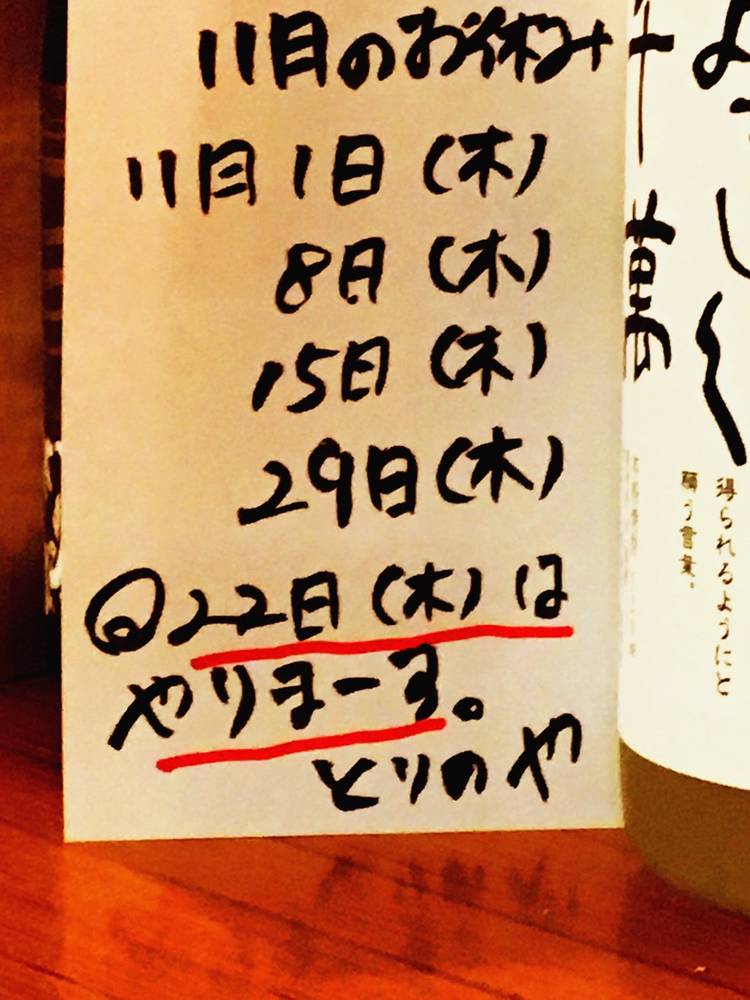 11月のお休み
11月1日(木)
8日(木)
15日(木)
29日(木)
◎22日(木)は
やりまーす。
とりのや
得られるようにと
願う言葉。